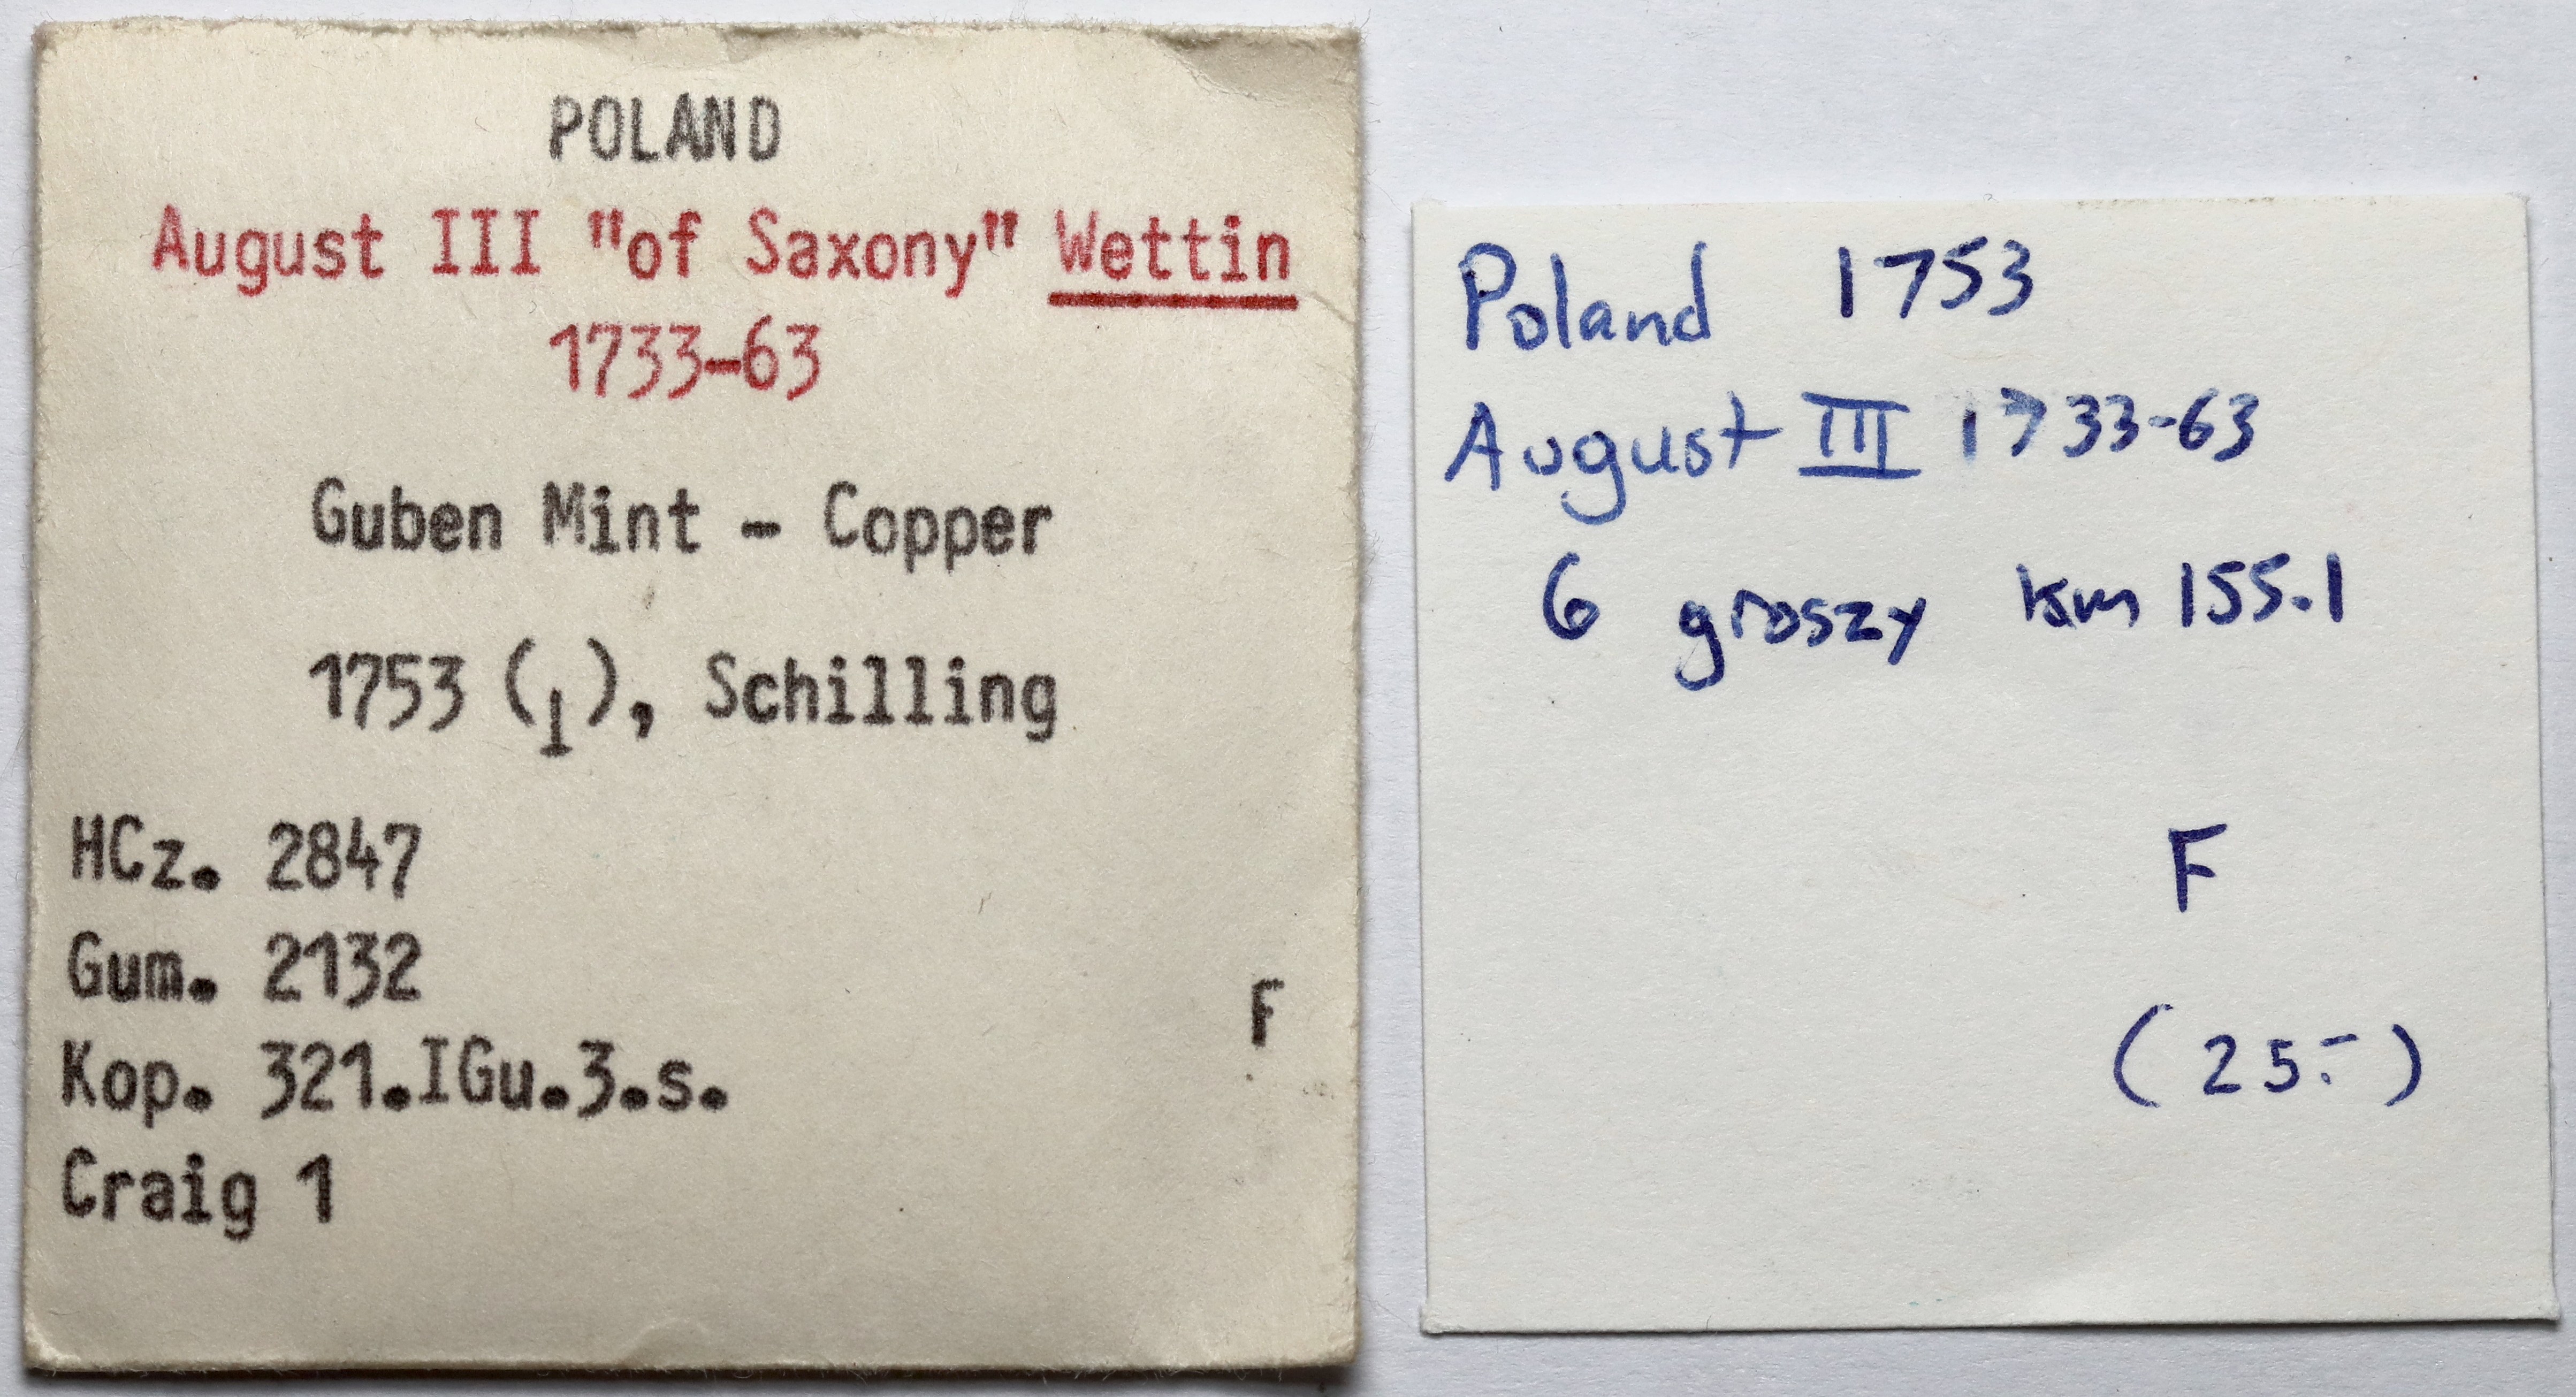 POLAND
August III "of Saxony" Wettin
1733-63
Guben Mint - Copper
1753 (I), Schilling
HCz. 2847
Gum. 2132
F
Kop. 321.IGu.3.s.
Craig 1
Poland 1753
August III 1733-63
6 groszy km 155.1
F
(25.-)